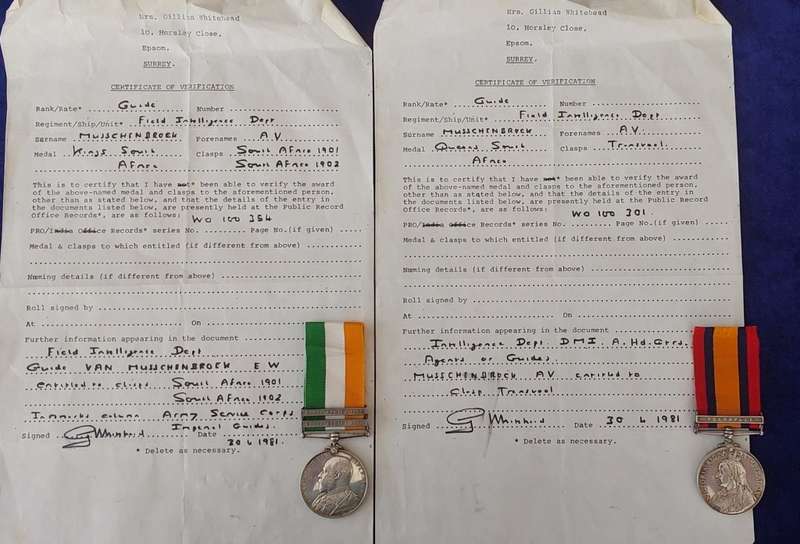 Mrs. Gillian Whitehead
10, Horsley Close,
Epsom,
SURREY.
CERTIFICATE OF VERIFICATION
Rank/Rate* Guide Number
Regiment/Ship/Unit* Field Intelligence Dept
Surname MUSSCHENBROEK Forenames A V
Medal Kings South Clasps South Africa 1901
Africa South Africa 1902
This is to certify that I have not* been able to verify the award
of the above-named medal and clasps to the aforementioned person,
other than as stated below, and that the details of the entry in
the documents listed below, are presently held at the Public Record
Office Records*, are as follows:
WO 100 354
PRO/India Office Records* series No. Page No.(if given)
Medal & clasps to which entitled (if different from above)
Naming details (if different from above)
Roll signed by
At On
Further information appearing in the document
Field Intelligence Dept
Guide VAN MUSSCHENBROEK E W
entitled to clasps South Africa 1901
South Africa 1902
In remarks column Army Service Corps
Imperial Guides.
Signed G Whitehead Date 30 4 1981.
* Delete as necessary.
Mrs. Gillian Whitehead
10, Horsley Close,
Epsom,
SURREY.
CERTIFICATE OF VERIFICATION
Rank/Rate* Guide Number
Regiment/Ship/Unit* Field Intelligence Dept
Surname MUSSCHENBROEK Forenames A V
Medal Queens South Clasps Transvaal
Africa
This is to certify that I have not* been able to verify the award
of the above-named medal and clasps to the aforementioned person,
other than as stated below, and that the details of the entry in
the documents listed below, are presently held at the Public Record
Office Records*, are as follows:
WO 100 301.
PRO/India Office Records* series No. Page No.(if given)
Medal & clasps to which entitled (if different from above)
Naming details (if different from above)
Roll signed by
At On
Further information appearing in the document
Intelligence Dept DMI A. Hd. Qrs.
Agents or Guides.
MUSSCHENBROEK A V entitled to
Clasp Transvaal
Signed G Whitehead Date 30 4 1981
* Delete as necessary.